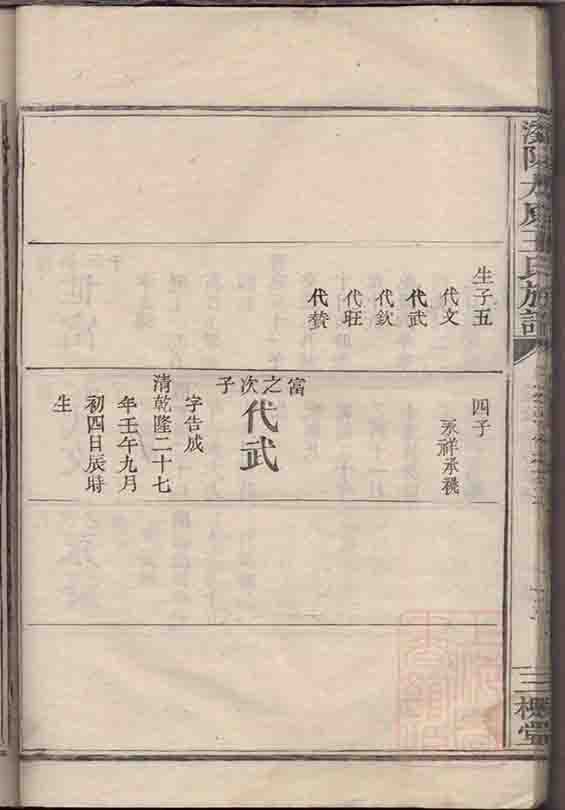 生子五
代文
代武
代欽
代旺
代贊
四子
永祥承禨
富之次子
代武
字告成
清乾隆二十七
年壬午九月
初四日辰時
生
王氏族譜
三槐堂